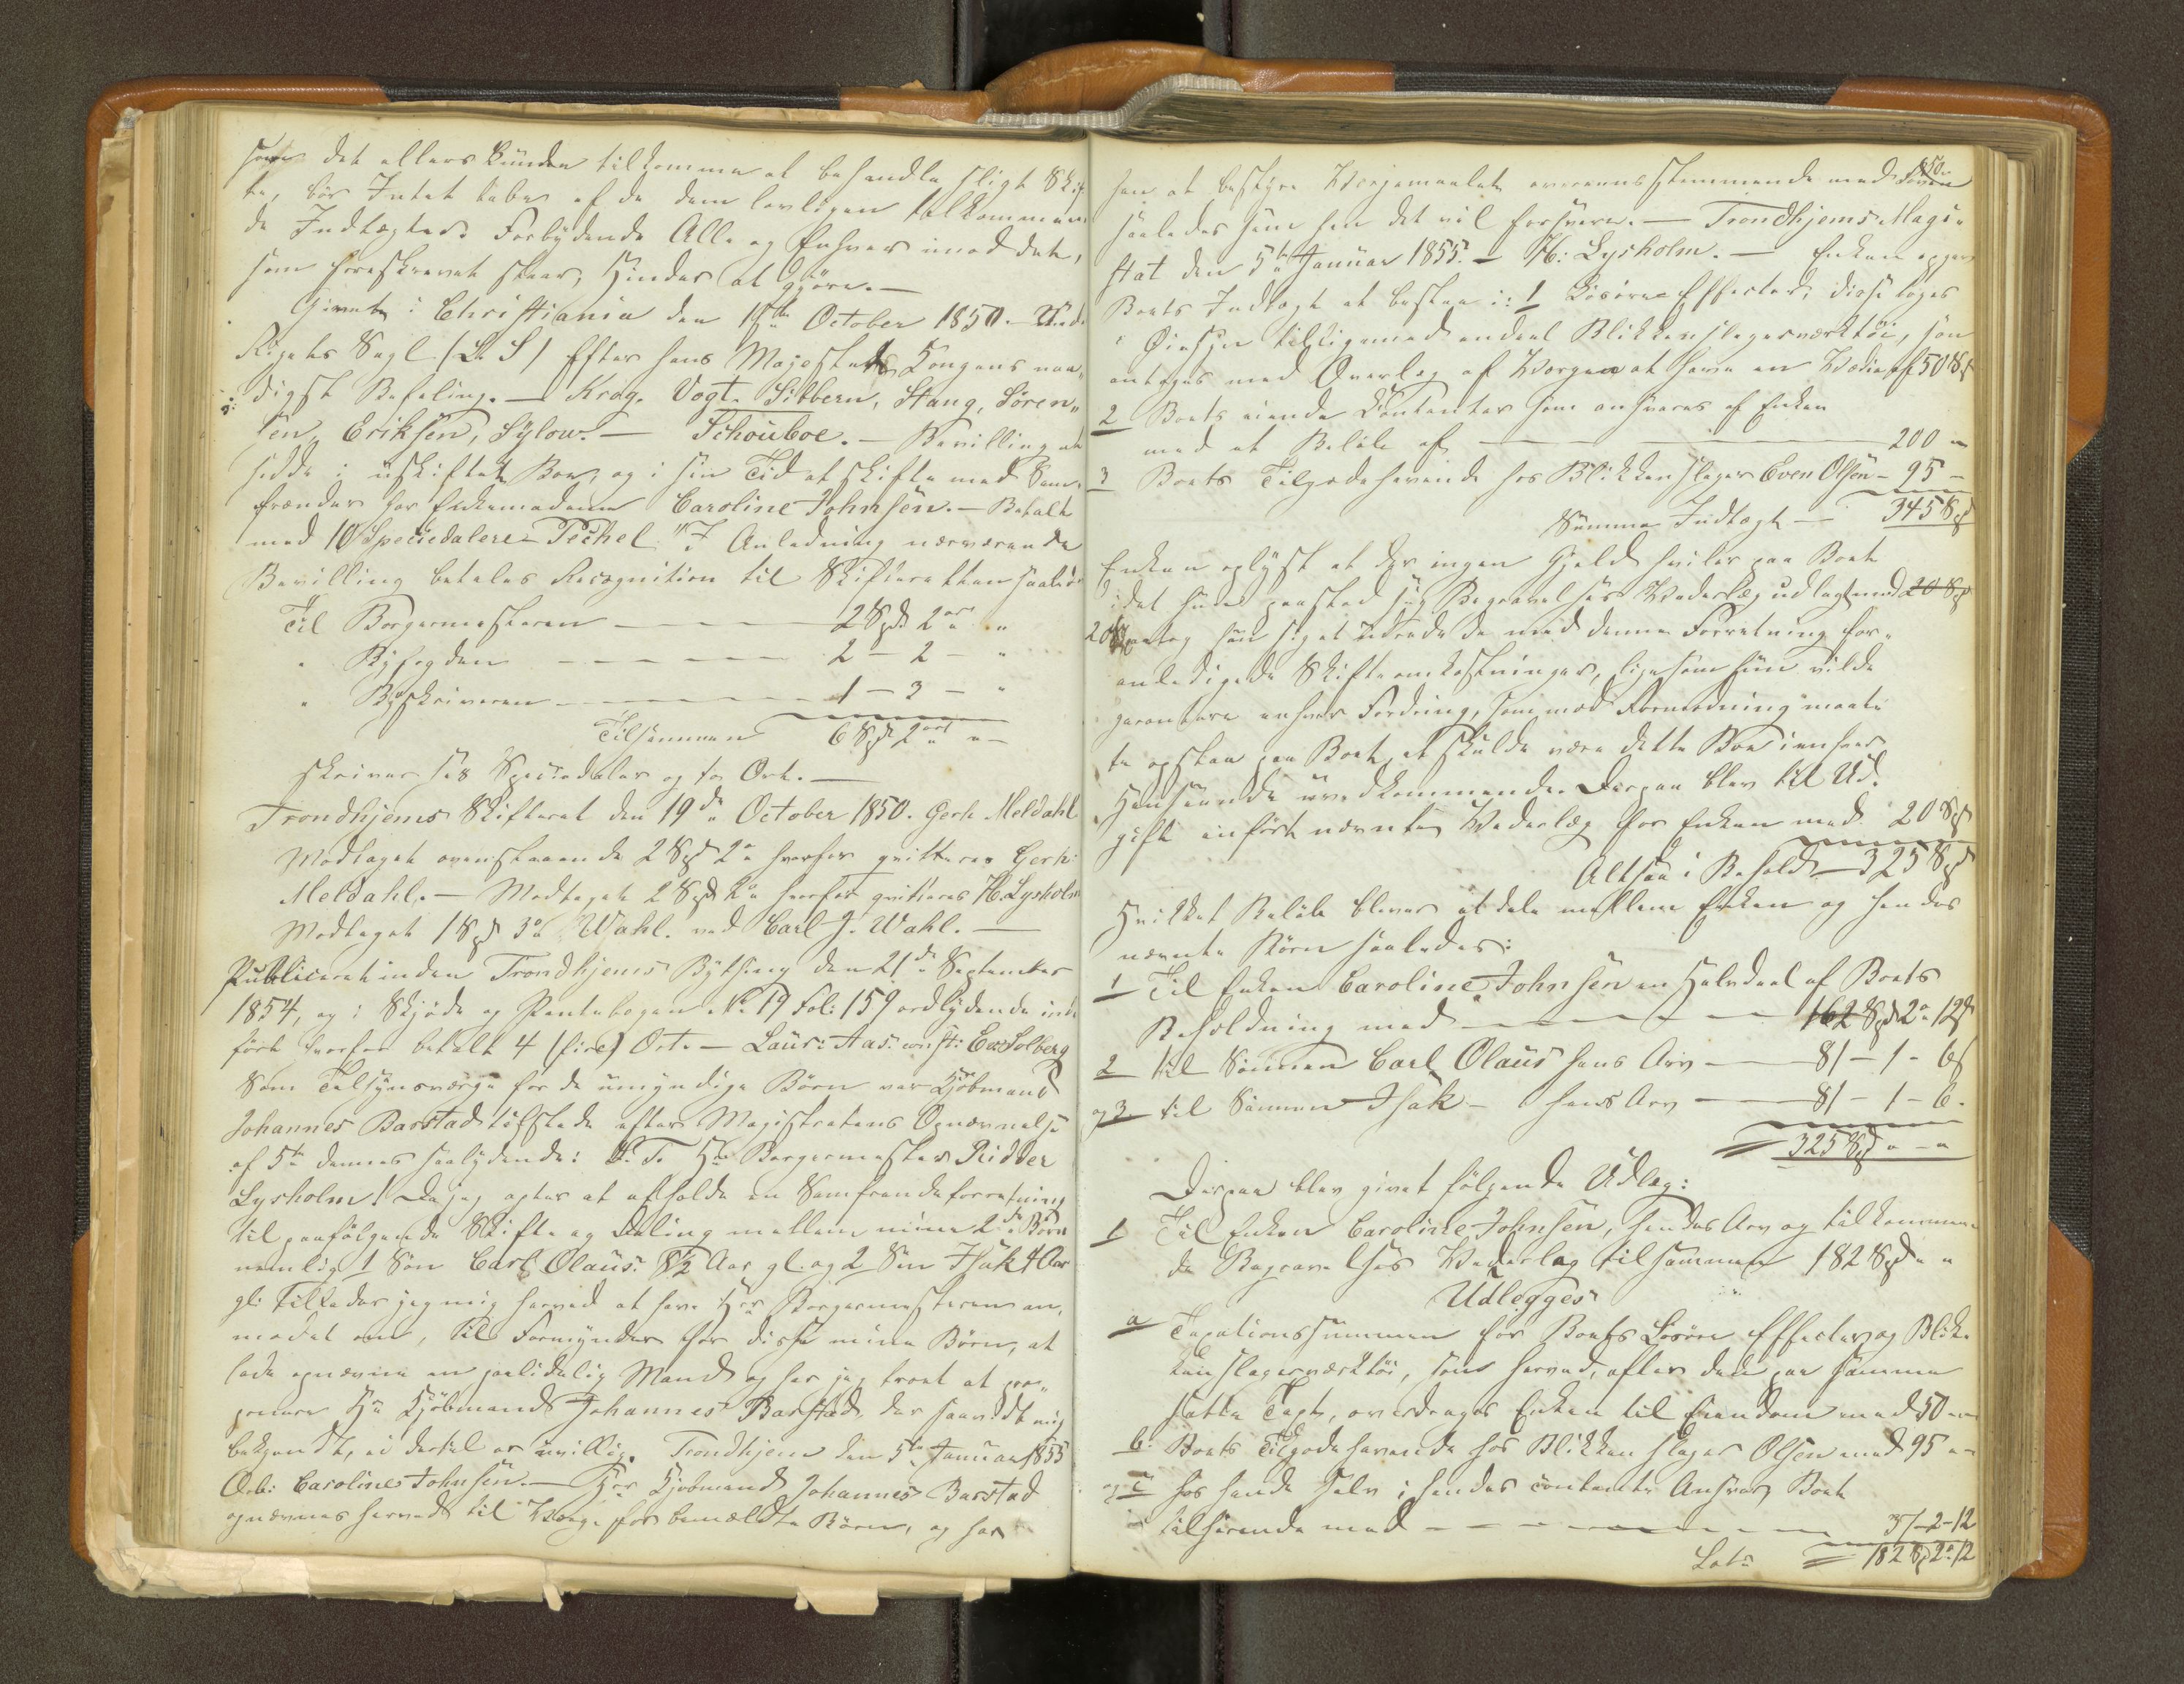 som det ellers kunde tilkomme at behandle sligt Skif
te, bør Intet tabes af de dem lovligen tilkommen
de Indtægter. Forbydende Alle og Enhver imod det,
som foreskrevet staar, Hinder at gjøre. —
Givet i Christiania den 15de October 1850. Under
Rigets Segl (L. S) Efter hans Majestæts Kongens naa-
digst Befaling. — Krog. Vogt. Sibbern, Stang, Sören-
sen, Eriksen, Sylow. — Schouboe. — Bevilling at
sidde i uskiftet Boe, og i sin Tid at skifte med Sam-
frænder for Enkemadame Caroline Johnsen. — Betalt
med 10 Speciedalere Pechel "I Anledning nærværende
Bevilling betales Recognition til Skifteretten saaledes
Til Borgermesteren — 2 Spd. 2 ort "
" Byfogden — 2 - 2 - "
" Byskriveren — 1 - 3 - "
Tilsammen 6 Spd 2 ort " -
skriver sex Speciedaler og to Ort. —
Trondhjems Skifteret den 19de October 1850. Gerh Meldahl
Modtaget ovenstaaende 2 Spd 2o hvorfor qvitteres Gerh:
Meldahl. — Modtaget 2 Spd 2o hvorfor qvitteres H. Lysholm
Modtaget 1 Spd 3o Wahl. ved Carl J. Wahl. —
Publiceret inden Trondhjems Bything den 21de September
1854, og i Skjøde og Pantebogen No 19 Fol: 159 ordlydende ind
ført hvorfor betalt 4 (fire) Ort. — Laur: Aas. const: Ev: Solberg
Som Tilsynsværge for de umyndige Børn var Kjøbmand
Johannes Barstad tilstede efter Magistratens Opnævnelse
af 5te dennes saalydende: S. T. Hr Borgermester Ridder
Lysholm! Da jeg agter at afholde en Samfrændeforretning
til paafølgende Skifte og Deling mellem mine 2de Børn
nemlig 1 Søn Carl Olaus 8½ Aar gl. og 2 Søn Isak 4 Aar
gl: tillader jeg mig herved at have Hr Borgermesteren an-
modet om, til Formynder for disse mine Børn, at
lade opnævne en paalidelig Mand og har jeg troet at pro-
ponere Hr Kjøbmand Johannes Barstad der saavidt mig
bekjendt, ei dertil er uvillig. Trondhjem den 5te Januar 1855
Ærb: Caroline Johnsen. — Hr Kjøbmand Johannes Barstad
opnævnes herved til Værge for bemældte Børn, og har
150.
han at bestyre Værgemaalet overeensstemmende med Loven
saaledes som han det vil forsvare. — Trondhjems Magi-
strat den 5te Januar 1855. — H: Lysholm. — Enken opgav
Boets Indtægt at bestaa i: 1 Løsøre Effecter, disse toges
i Øiesyn tilligemed endeel Blikkenslagerværktøi, som
antoges med Overlæg af Værgen at have en Værdie af 50 Spd
2 Boets eiende Contanter som ansvares af Enken
med et Beløb af — 200 "
3 Boets Tilgodehavende hos Blikkenslager Even Olsen - 95 -
Summa Indtægt — 345 Spd
Enken oplyste at der ingen Gjeld hviler paa Boet
idet hun paastod sig Begravelses Vederlæg udlagt med 20 Spd
20 Spd paatog hun sig at udrede de med denne Forretning for-
anledigede Skifteomkostninger, ligesom hun vilde
garantere enhver Fordring, som mod Formodning maat-
te opstaa paa Boet, at skulde være dette Boe i enhver
Henseende uvedkommende. Derpaa blev til Ud-
gift anført nævnte Vederlæg for Enken med 20 Spd
Altsaa i Behold — 325 Spd
Hvilket Beløb bliver at dele mellem Enken og hendes
nævnte Børn saaledes:
1 Til Enken Caroline Johnsen en Halvdeel af Boets
Beholdning med — 162 Spd 2o 12s
2 til Sønnen Carl Olaus hans Arv — 81 - 1 - 6s
og 3 til Sønnen Isak - hans Arv — 81 - 1 - 6.
= 325 Spd " - "
Derpaa blev givet følgende Udlæg:
1 Til Enken Caroline Johnsen, hendes Arv og tilkommen
de Begravelses Vederlag tilsammen 182 Spd " "
Udlægges
a Taxationssummen for Boets Løsøre Effecter og Blik-
kenslagerværktøi, som herved, efter den paa samme
satte Taxt, overdrages Enken til Eiendom med 50 - -
b: Boets Tilgodehavende hos Blikkenslager Olsen med 95 - -
og c hos hende selv i hendes contante Ansvar, Boet
tilhørende med — 37 - 2 - 12
Lats = 182 Spd 2o 12